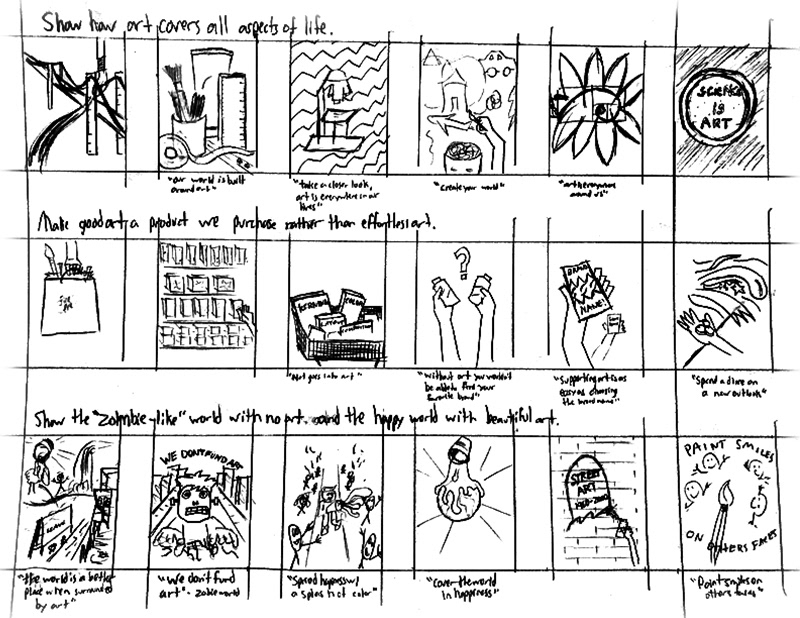 Show how art covers all aspects of life.
SCIENCE
IS
ART
"Our world is built
around art"
"take a closer look,
art is everywhere in our
lives"
"Create your world"
"art is everywhere
around us"
Make good art, a product we purchase rather than effortless art.
?
BRAND
NAME!
"Not goes into art"
"Without art you wouldn't
be able to find your
favorite brand"
"Supporting art is as
easy as choosing
the brand name"
"Spend a dime on
a new outlook"
Show the "zombie-like" world with no art. and the happy world with beautiful art.
WE DONT FUND ART
STREET
ART
PAINT SMILES
ON OTHERS FACES
"the world is a better
place when surrounded
by art"
"We don't fund
art" - zombie world
"Spread happiness w/
a splash of color"
"Cover the world
in happiness"
"Paint smiles on
others faces"